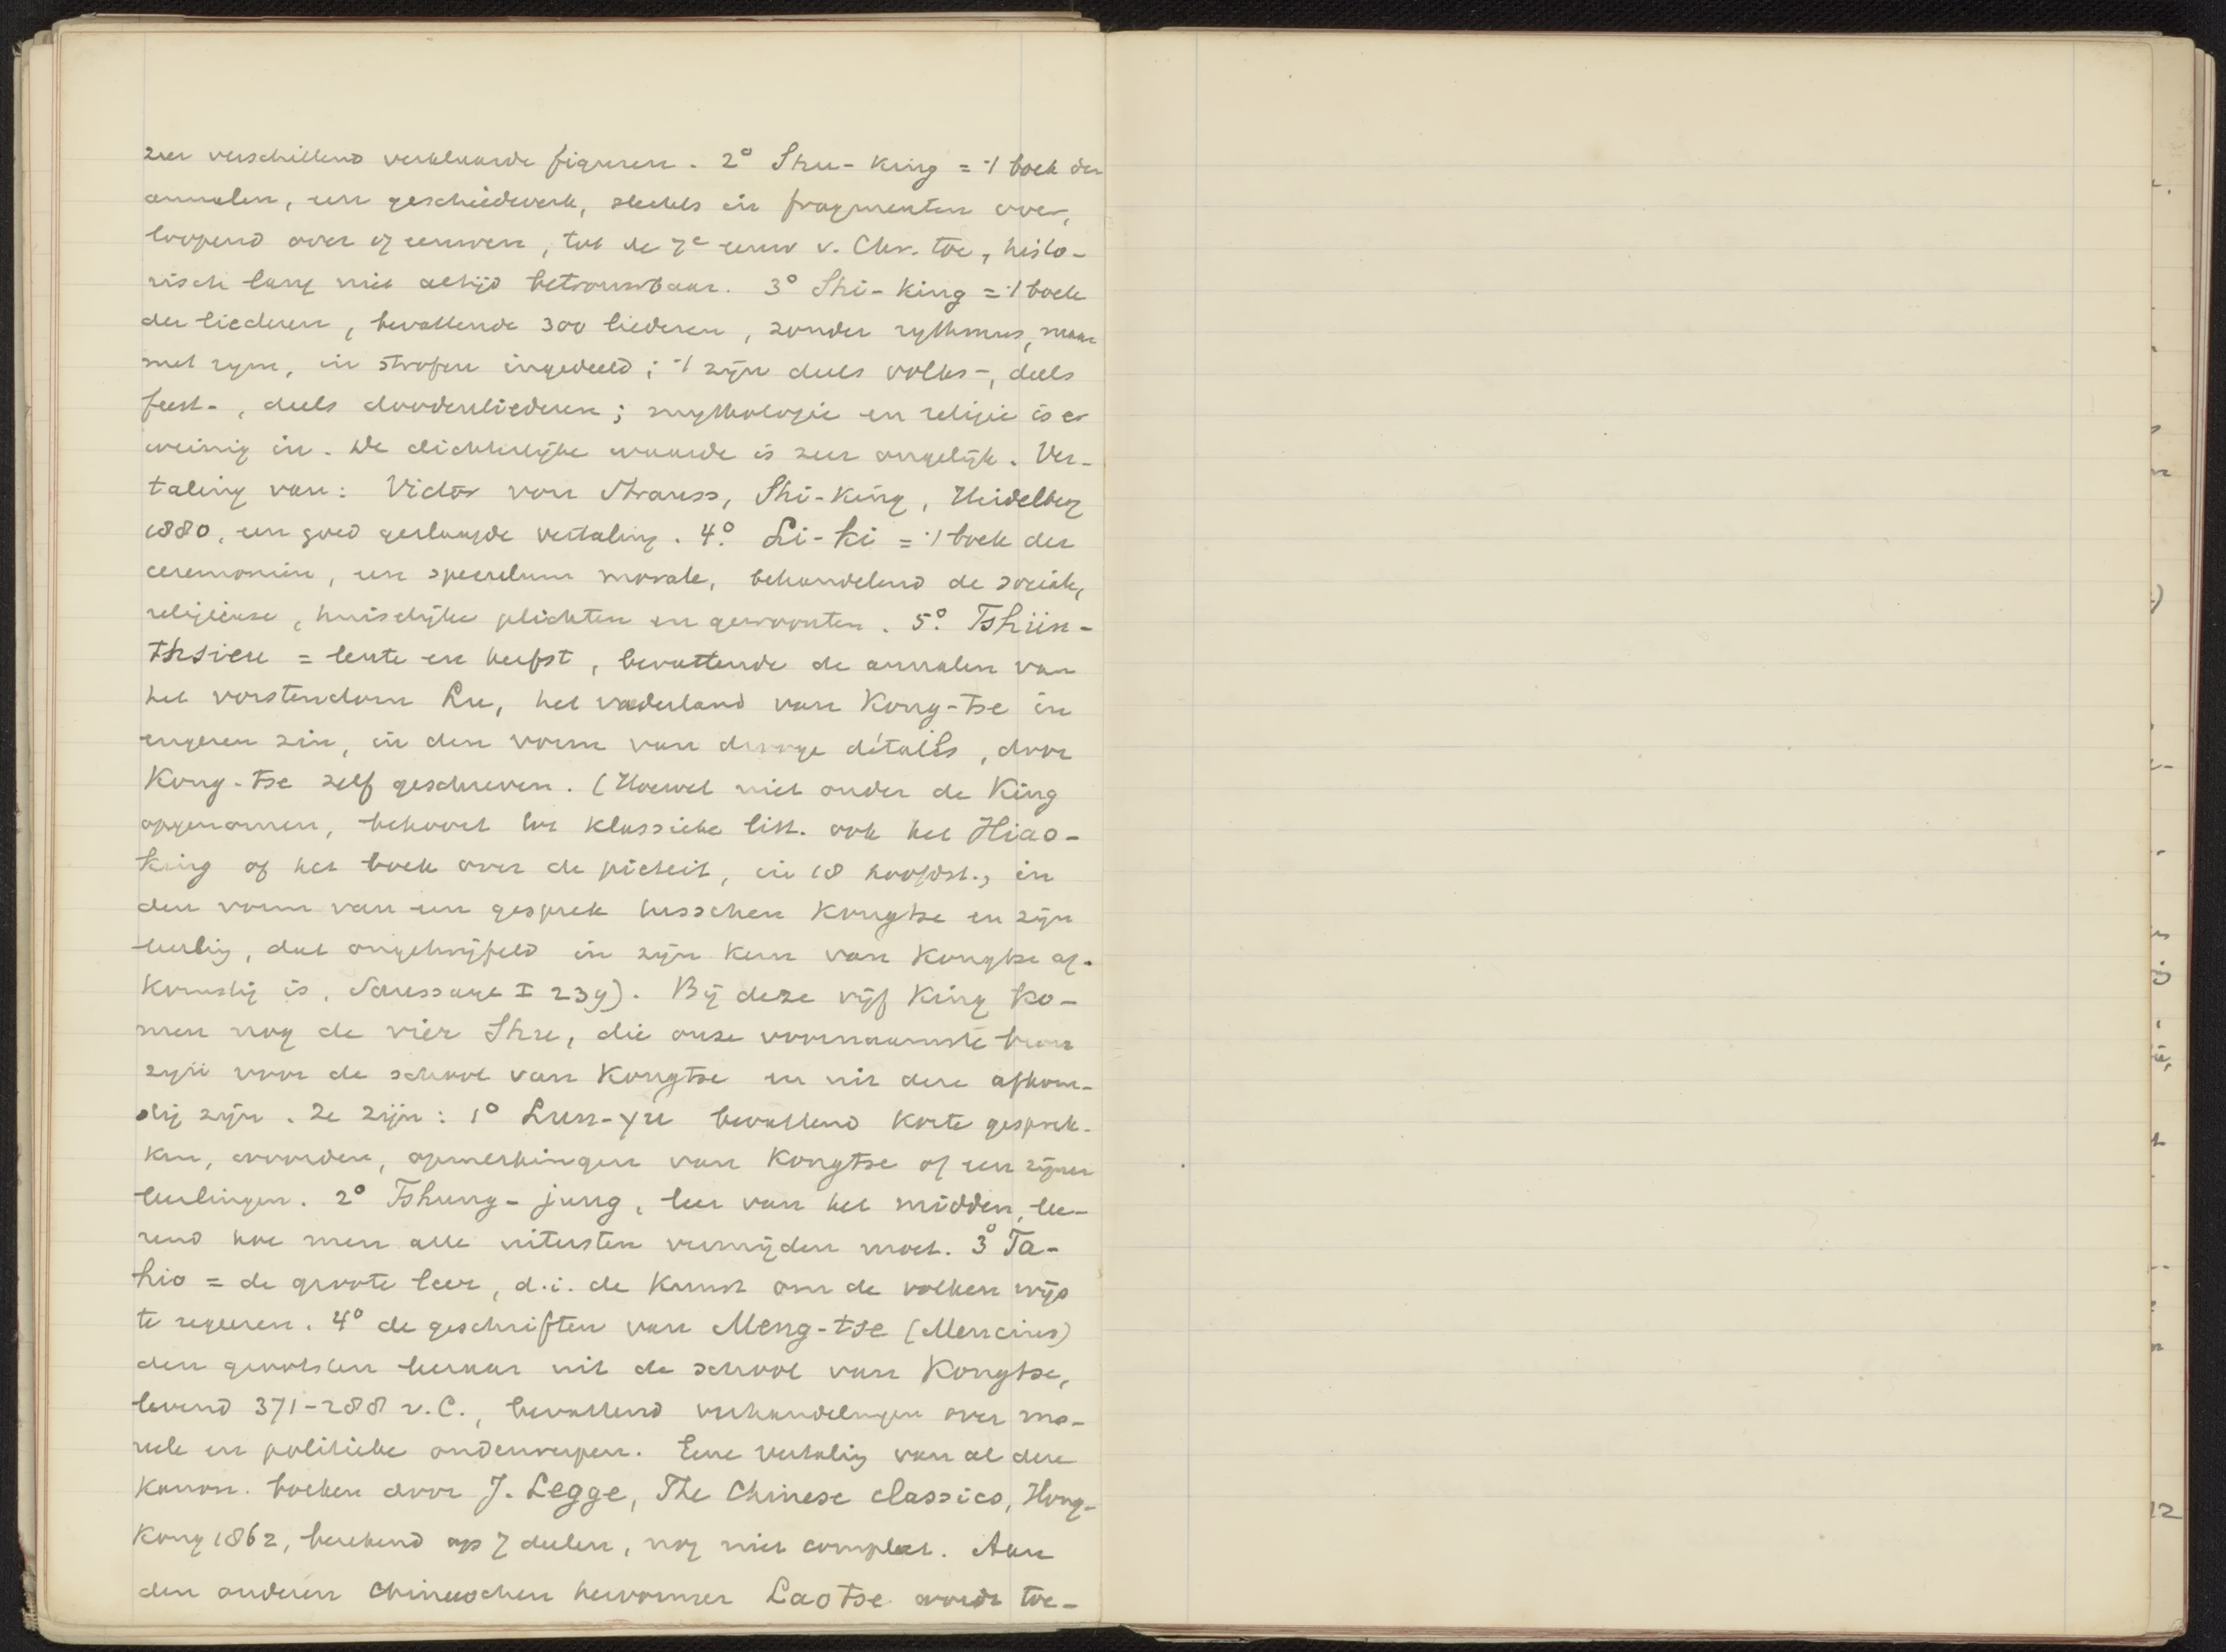 zeer verschillend verklaarde figuren. 2° Shu-King = 't boek der
annalen, een geschiedwerk, slechts in fragmenten over,
loopend over 17 eeuwen, tot de 7e eeuw v. Chr. toe, histo-
risch lang niet altijd betrouwbaar. 3° Shi-King = 't boek
der liederen, bevattende 300 liederen, zonder rythmus, maar
met rym, in strofen ingedeeld; 't zijn deels volks-, deels
feest-, deels doodenliederen; mythologie en religie is er
weinig in. De dichterlijke waarde is zeer ongelijk. Ver-
taling van: Victor von Strauss, Shi-King, Heidelberg
1880, een goed geslaagde vertaling. 4° Li-ki = 't boek der
ceremoniën, een speculum morale, behandelend de sociale,
religieuse, huiselijke plichten en gewoonten. 5° Tshün-
thsieu = lente en herfst, bevattende de annalen van
het vorstendom Lu, het vaderland van Kong-tse in
engeren zin, in den vorm van droge détails, door
Kong-tse zelf geschreven. (Hoewel niet onder de King
opgenomen, behoort tot klassieke litt. ook het Hiao-
king of het boek over de piëteit, in 18 hoofdst., in
den vorm van een gesprek tusschen Kongtse en zijn
leerling, dat ongetwijfeld in zijn kern van Kongtse af-
komstig is, Saussaye I 239). Bij deze vijf King ko-
men nog de vier Shu, die onze voornaamste bron
zijn voor de school van Kongtse en uit deze afkom-
stig zijn. Ze zijn: 1° Lun-yu bevattend korte gesprek-
ken, woorden, opmerkingen van Kongtse of een zijner
leerlingen. 2° Tshung-jung, leer van het midden, lee-
rend hoe men alle uitersten vermijden moet. 3° Ta-
hio = de groote leer, d.i. de kunst om de volken wijs
te regeeren. 4° de geschriften van Meng-tse (Mencius)
den grootsten leeraar uit de school van Kongtse,
levend 371-288 v.C., bevattend verhandelingen over mo-
reele en politieke onderwerpen. Eene vertaling van al deze
kanon. boeken door J. Legge, The Chinese classics, Hong-
Kong 1862, berekend op 7 deelen, nog niet compleet. Aan
den anderen Chineeschen hervormer Laotse wordt toe-